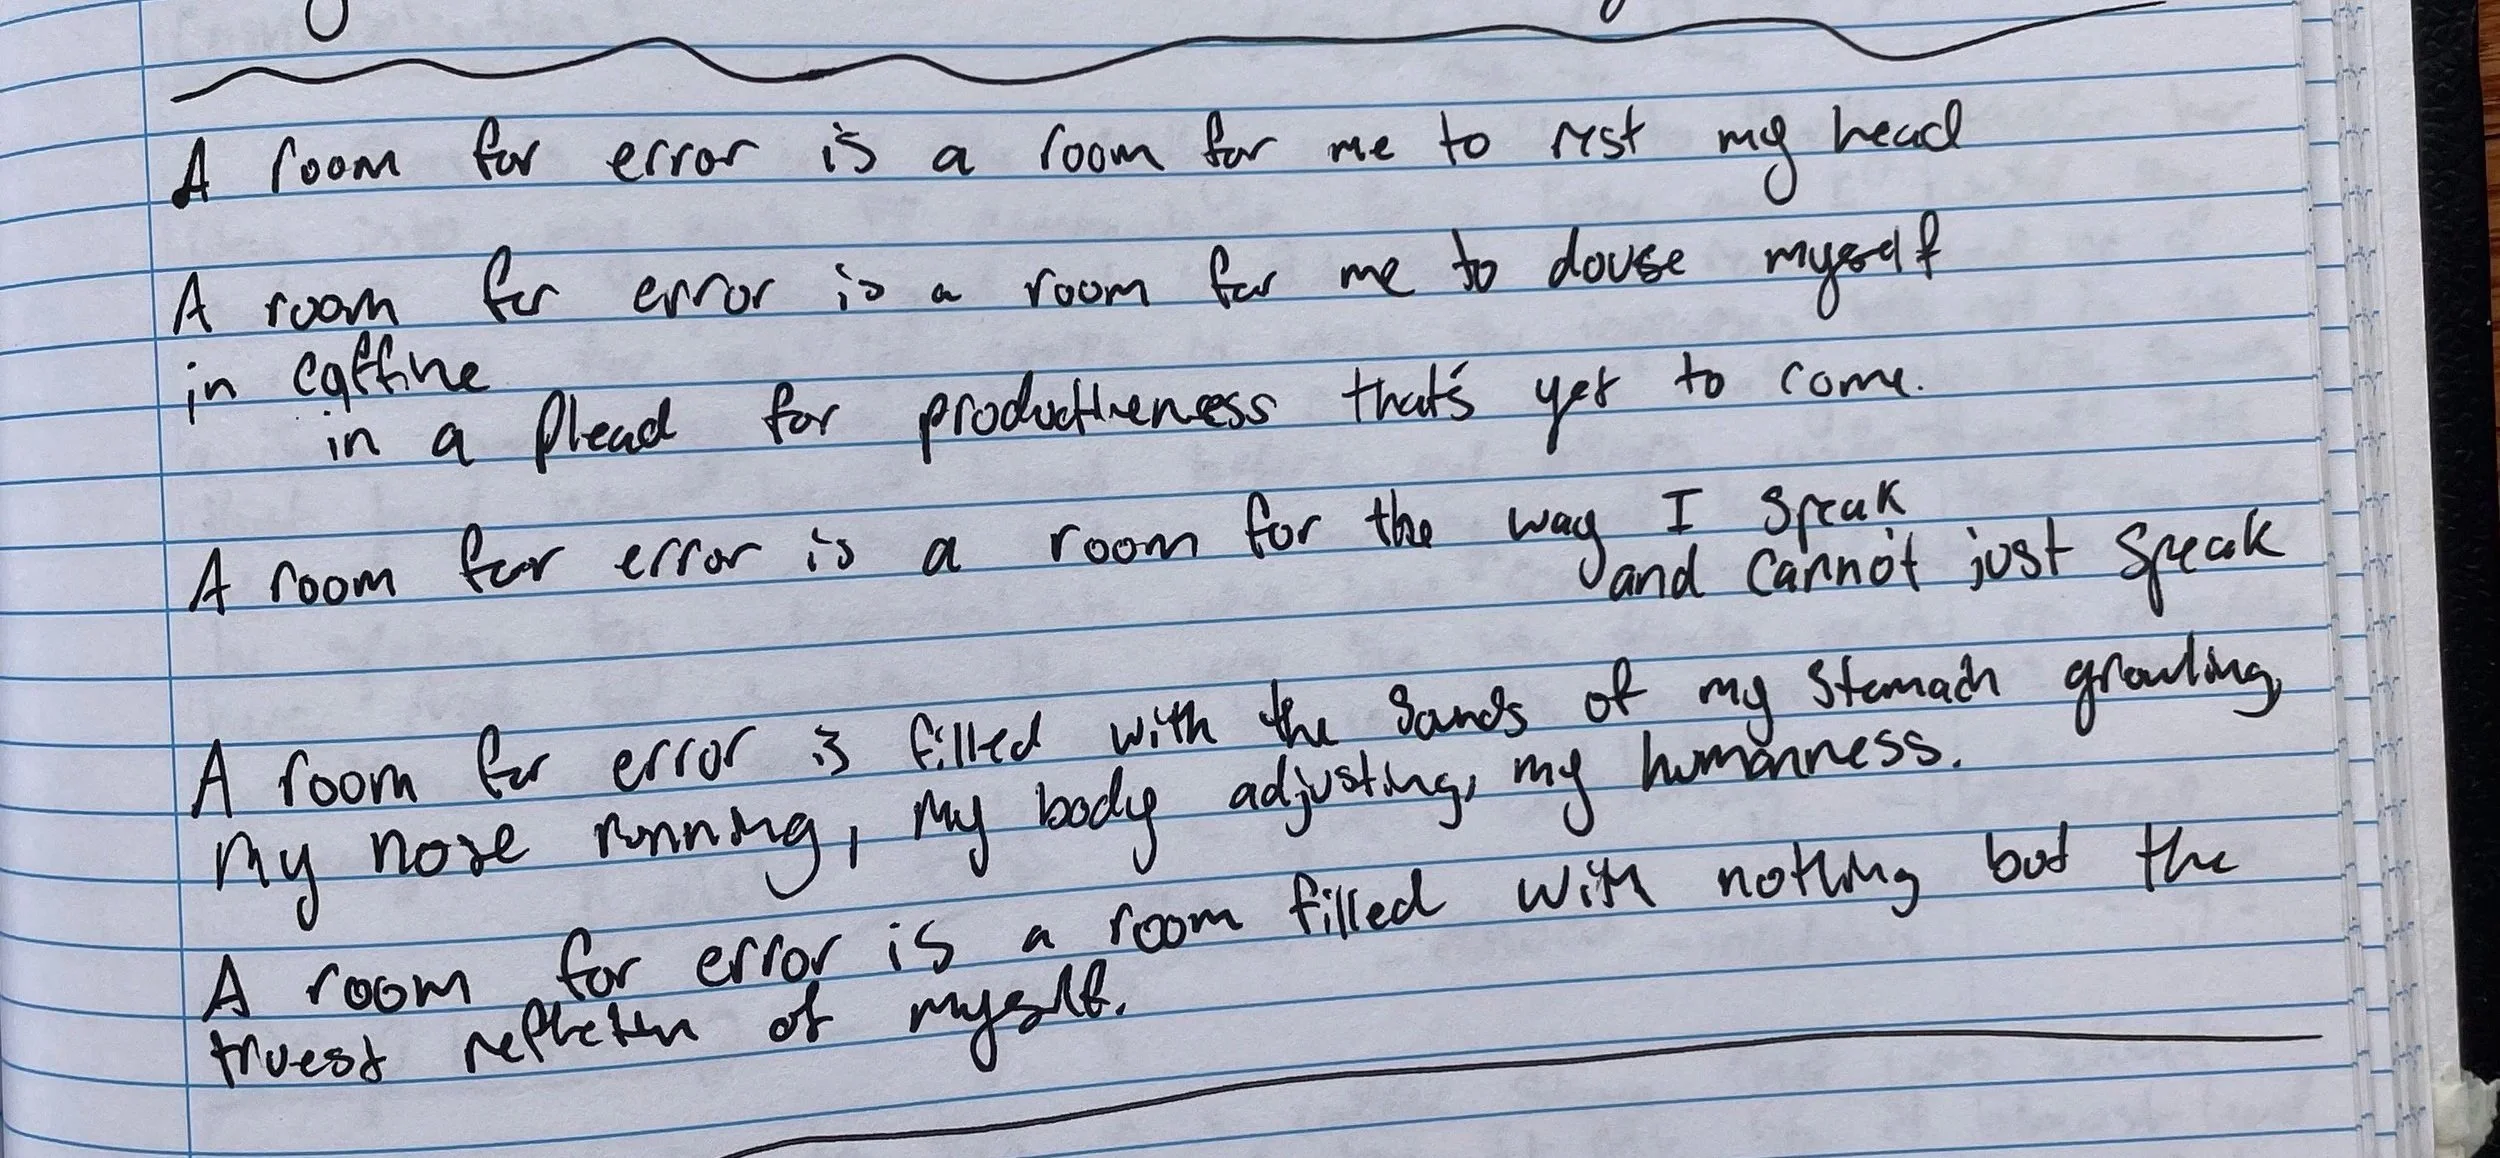 A room for error is a room for me to rest my head
A room for error is a room for me to douse myself
in caffine
in a plead for productiveness that's yet to come.
A room for error is a room for the way I speak
and cannot just speak
A room for error is filled with the sounds of my stomach growling,
my nose running, my body adjusting, my humanness.
A room for error is a room filled with nothing but the
truest reflection of myself.